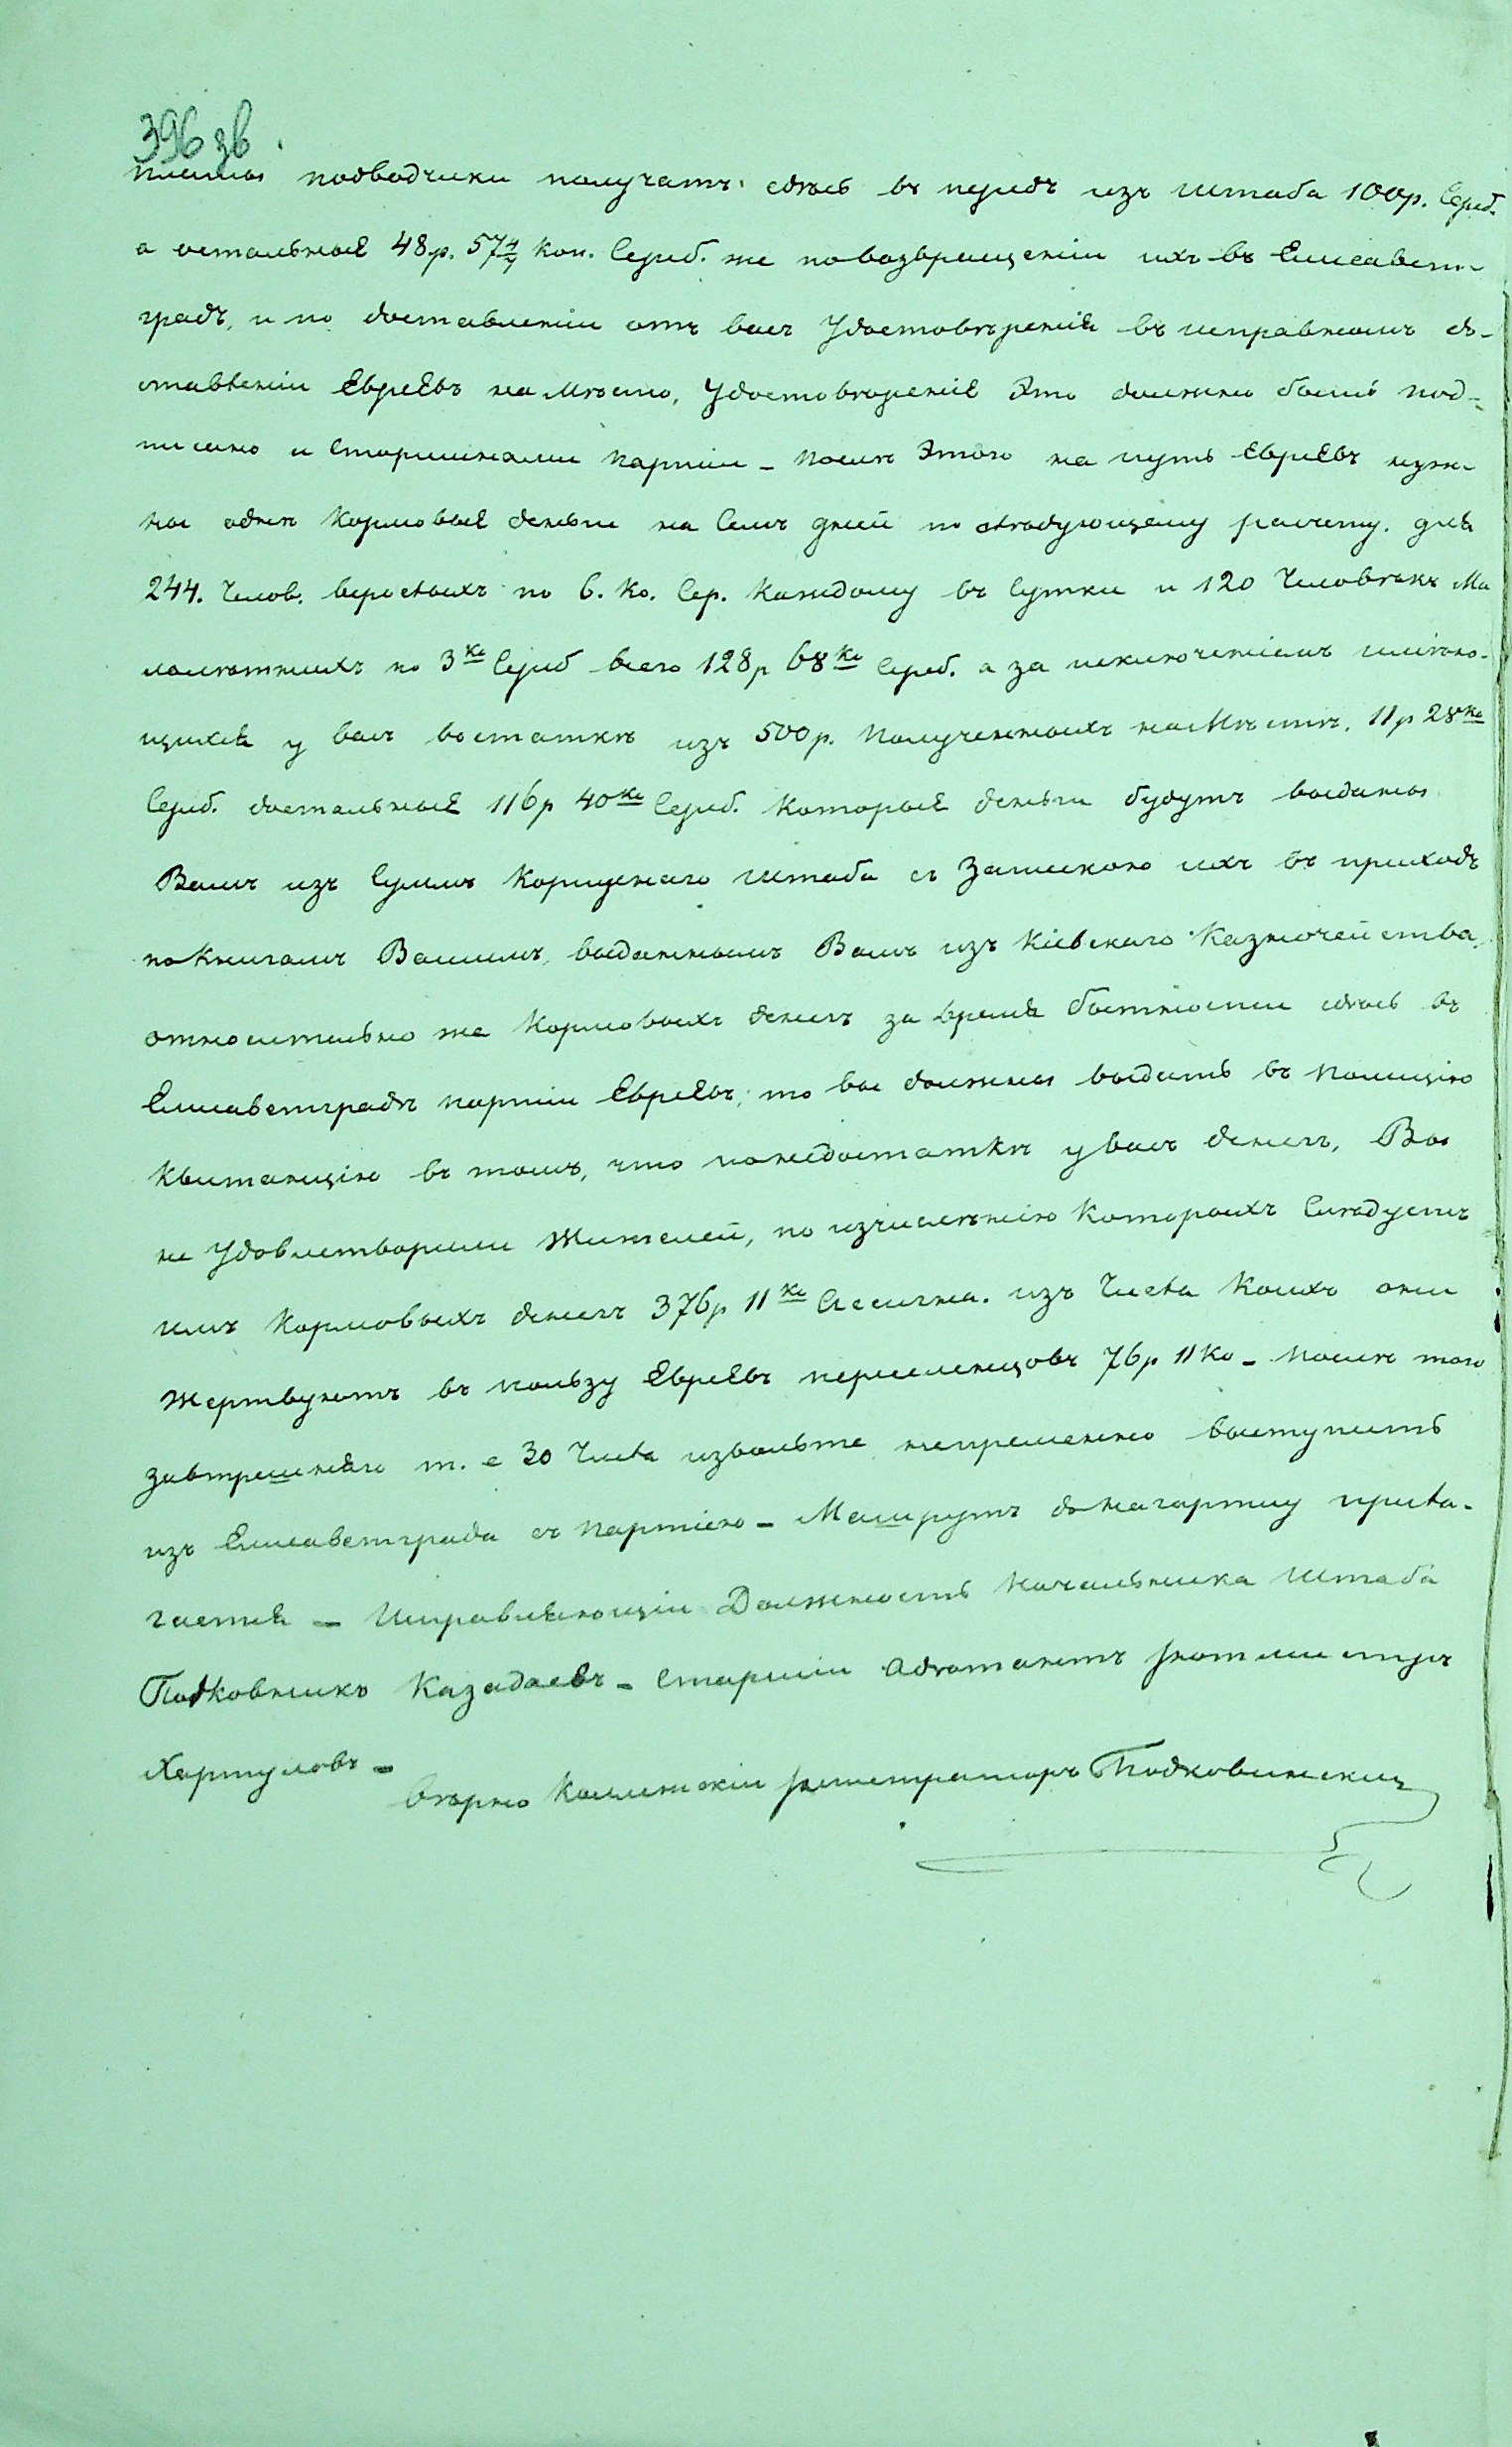 396 зв.
подводчики получатъ здѣсь въ передъ изъ Штаба 100р. Сереб.
а остальныЕ 48р. 57 4/7 Коп. Сереб. же повозвращеніи ихъ въ Елисавет-
градъ, и по доставленіи отъ васъ Удостовѣренія въ исправномъ до-
ставленіи ЕвреЕвъ на мѣсто, УдостовѣреніЕ Это должно быть под-
писано и Старшинами партіи – послѣ Этого на путь ЕвреЕвъ нуж-
ны однѣ КормовыЕ деньги на Семь дней по слѣдующему расчету. для
244. Челов. взрослыхъ по 6. Ко. Сер. Каждому въ Сутки и 120 Человѣкъ Ма
лолѣтнихъ по 3 Ко Сереб всего 128р 68 Ко Сереб. а за исключеніемъ имѣю-
щихся у васъ востаткѣ изъ 500р. Полученныхъ на Мѣстѣ. 11р 28 Ко
Сереб. достальныЕ 116р 40 Ко Сереб. КоторыЕ деньги будутъ выданы
Вамъ изъ Суммъ Корпуснаго Штаба съ Запискою ихъ въ приходъ
по Книгамъ Вашимъ, выданнымъ Вамъ изъ Кіевскаго Казначейства,
относительно же Кормовыхъ денегъ за время бытности здѣсь въ
Елисаветградѣ партіи ЕвреЕвъ; то вы должны выдать въ Полицію
Квитанцію въ томъ, что понедостаткѣ у васъ денегъ, Вы
не Удовлетворили Жителей, по изчисленію Которыхъ Слѣдуетъ
имъ Кормовыхъ денегъ 376р 11 Ко Ассигна. изъ Числа Коихъ они
Жертвуютъ въ пользу ЕвреЕвъ переселенцовъ 76р 11 Ко – послѣ того
завтрешняго т. е 30 Числа извольте непременно выступить
изъ Елисаветграда съ партіею – Маширутъ донагартну прила-
гается – Исправляющіи Должность Начальника Штаба
Подковникъ Казадаевъ – Старшіи Адютантъ ротмистръ
Хартуловъ –
Вѣрно Коллежскіи регистраторъ Подковинскій